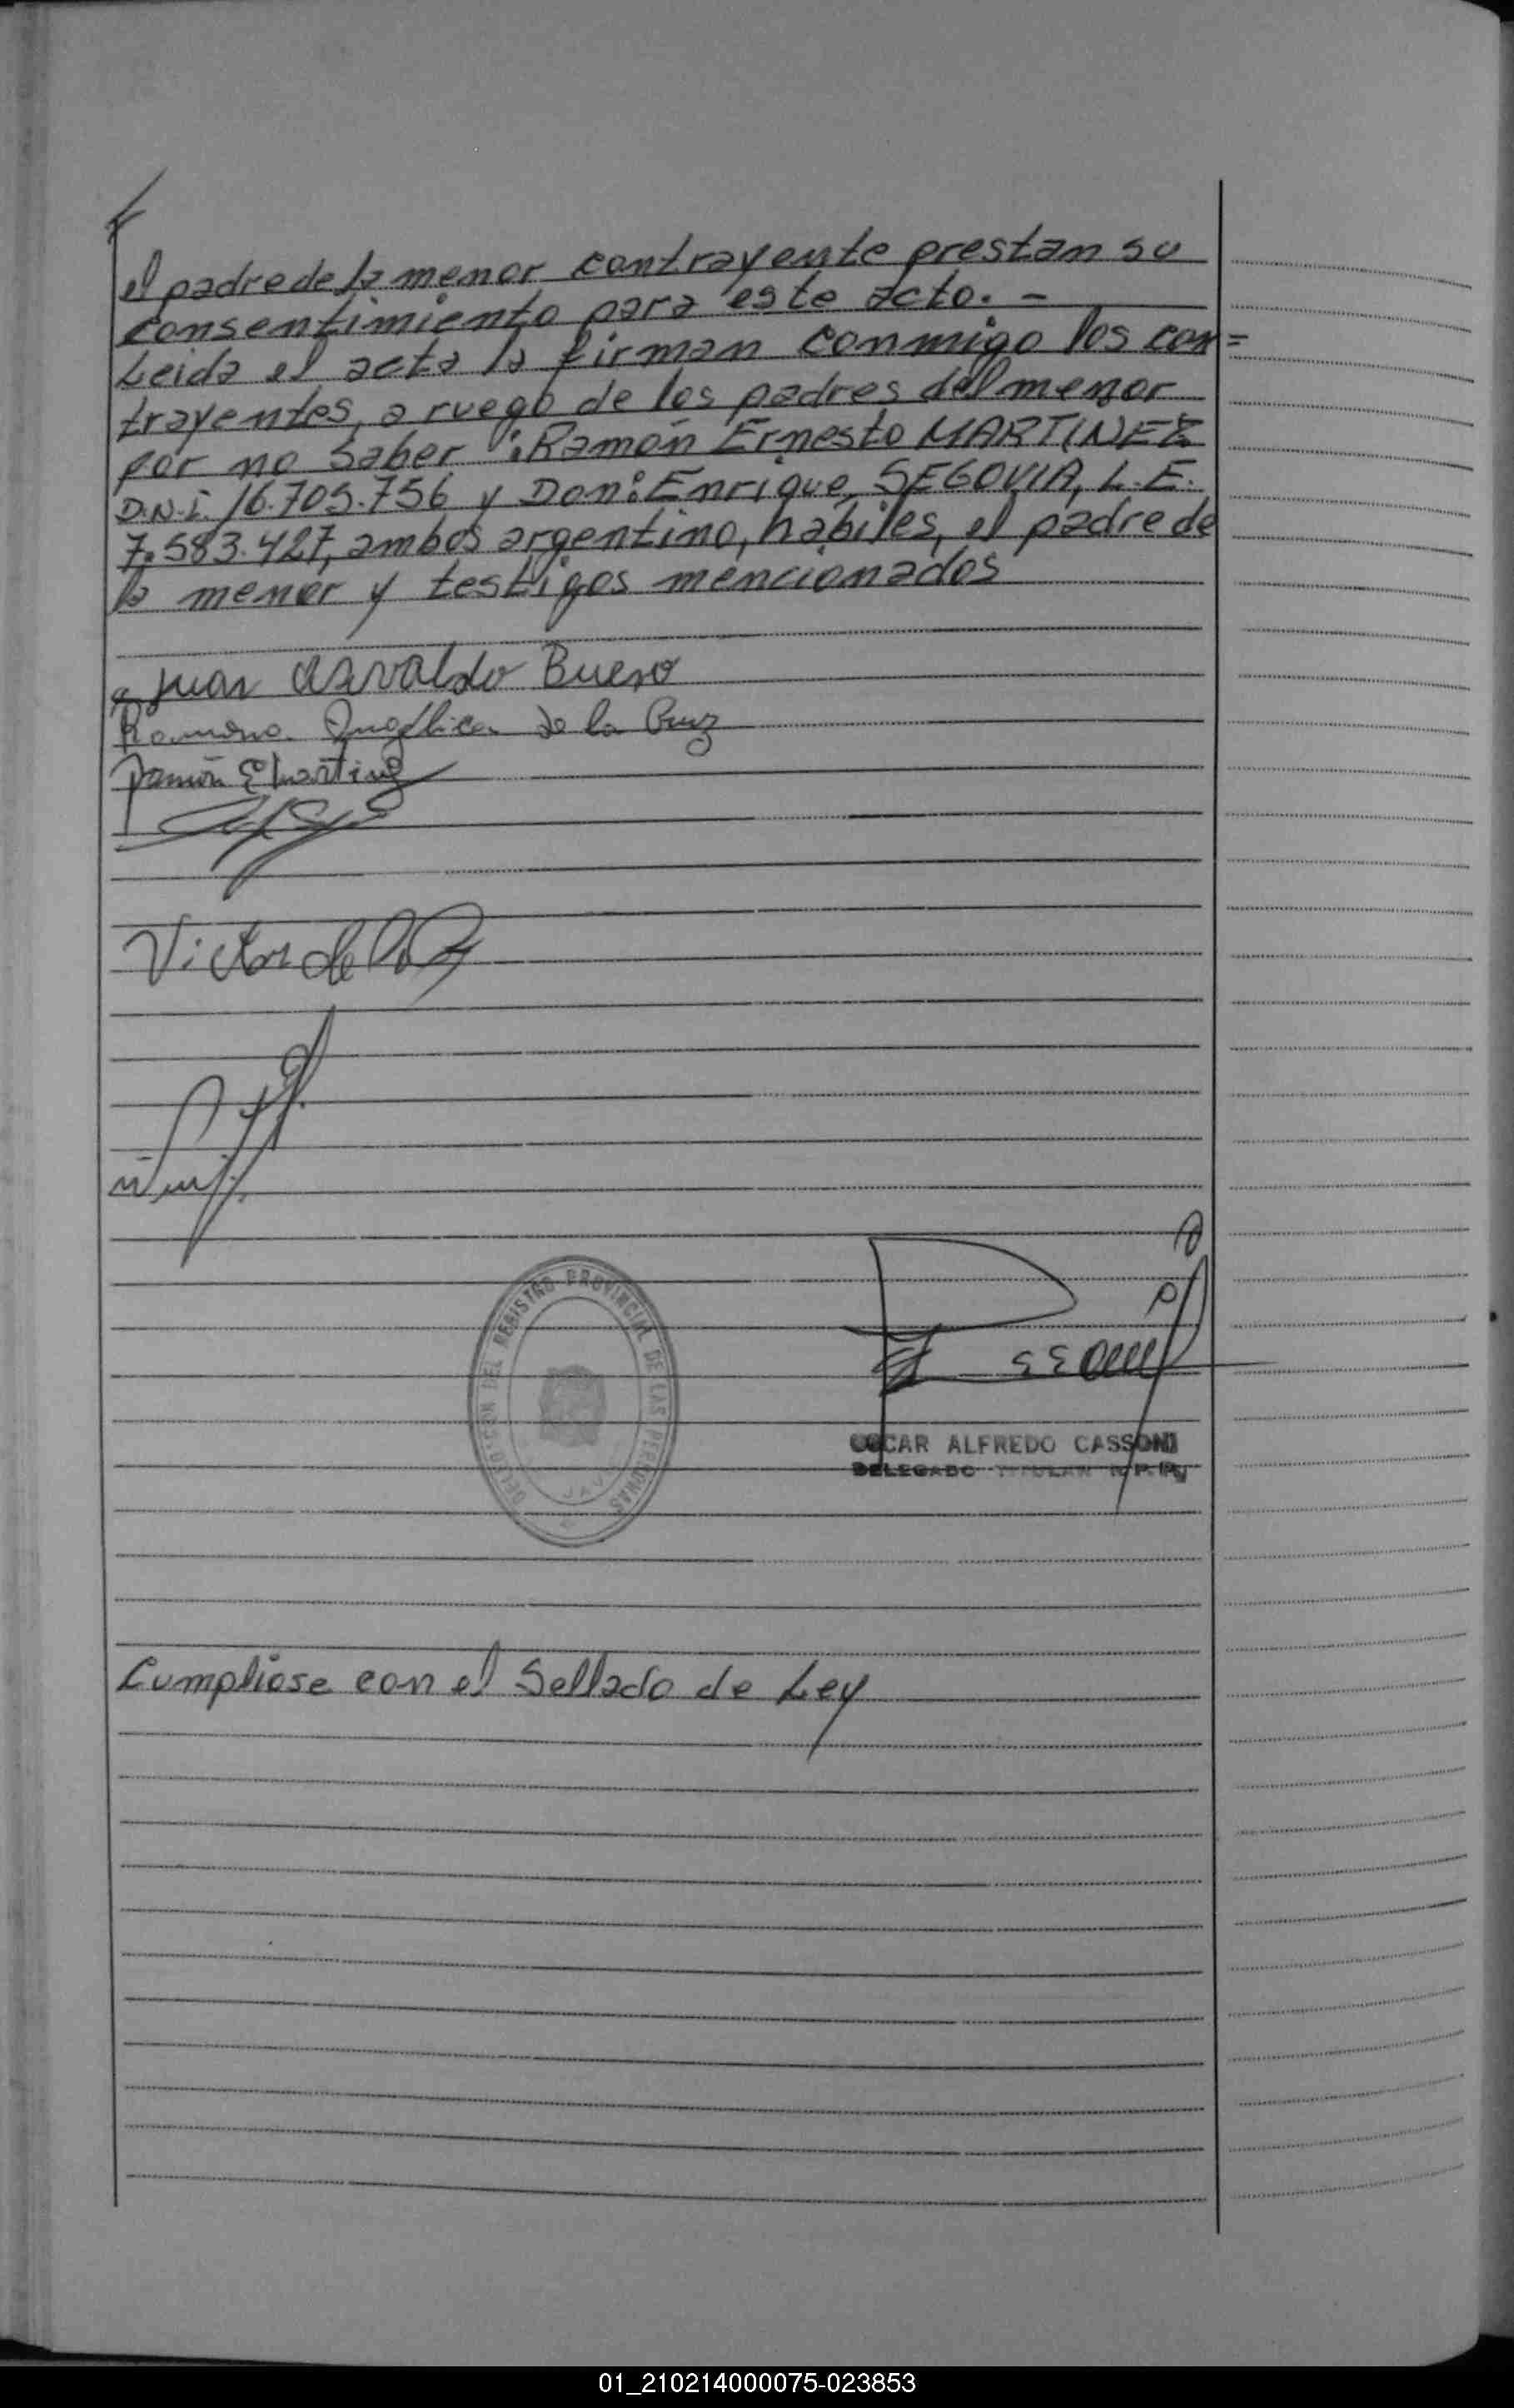 el padre de la menor contrayente prestan su
consentimiento para este acto. -
Leida el acta la firman conmigo los con=
trayentes, a ruego de los padres del menor
por no saber: Ramón Ernesto MARTINEZ
D.N.I. 16.705.756 y Don: Enrique, SEGOVIA, L.E.
7.583.427, ambos argentino, habiles, el padre de
la menor y testigos mencionados
Juan Osvaldo Bueno
Romona Angélica de la Cruz
Ramón E Martinez
Victor de la
DELEGACION DEL REGISTRO PROVINCIAL DE LAS PERSONAS
OSCAR ALFREDO CASSONI
DELEGADO TITULAR R.P.P.
Cumpliose con el Sellado de Ley
01_210214000075-023853